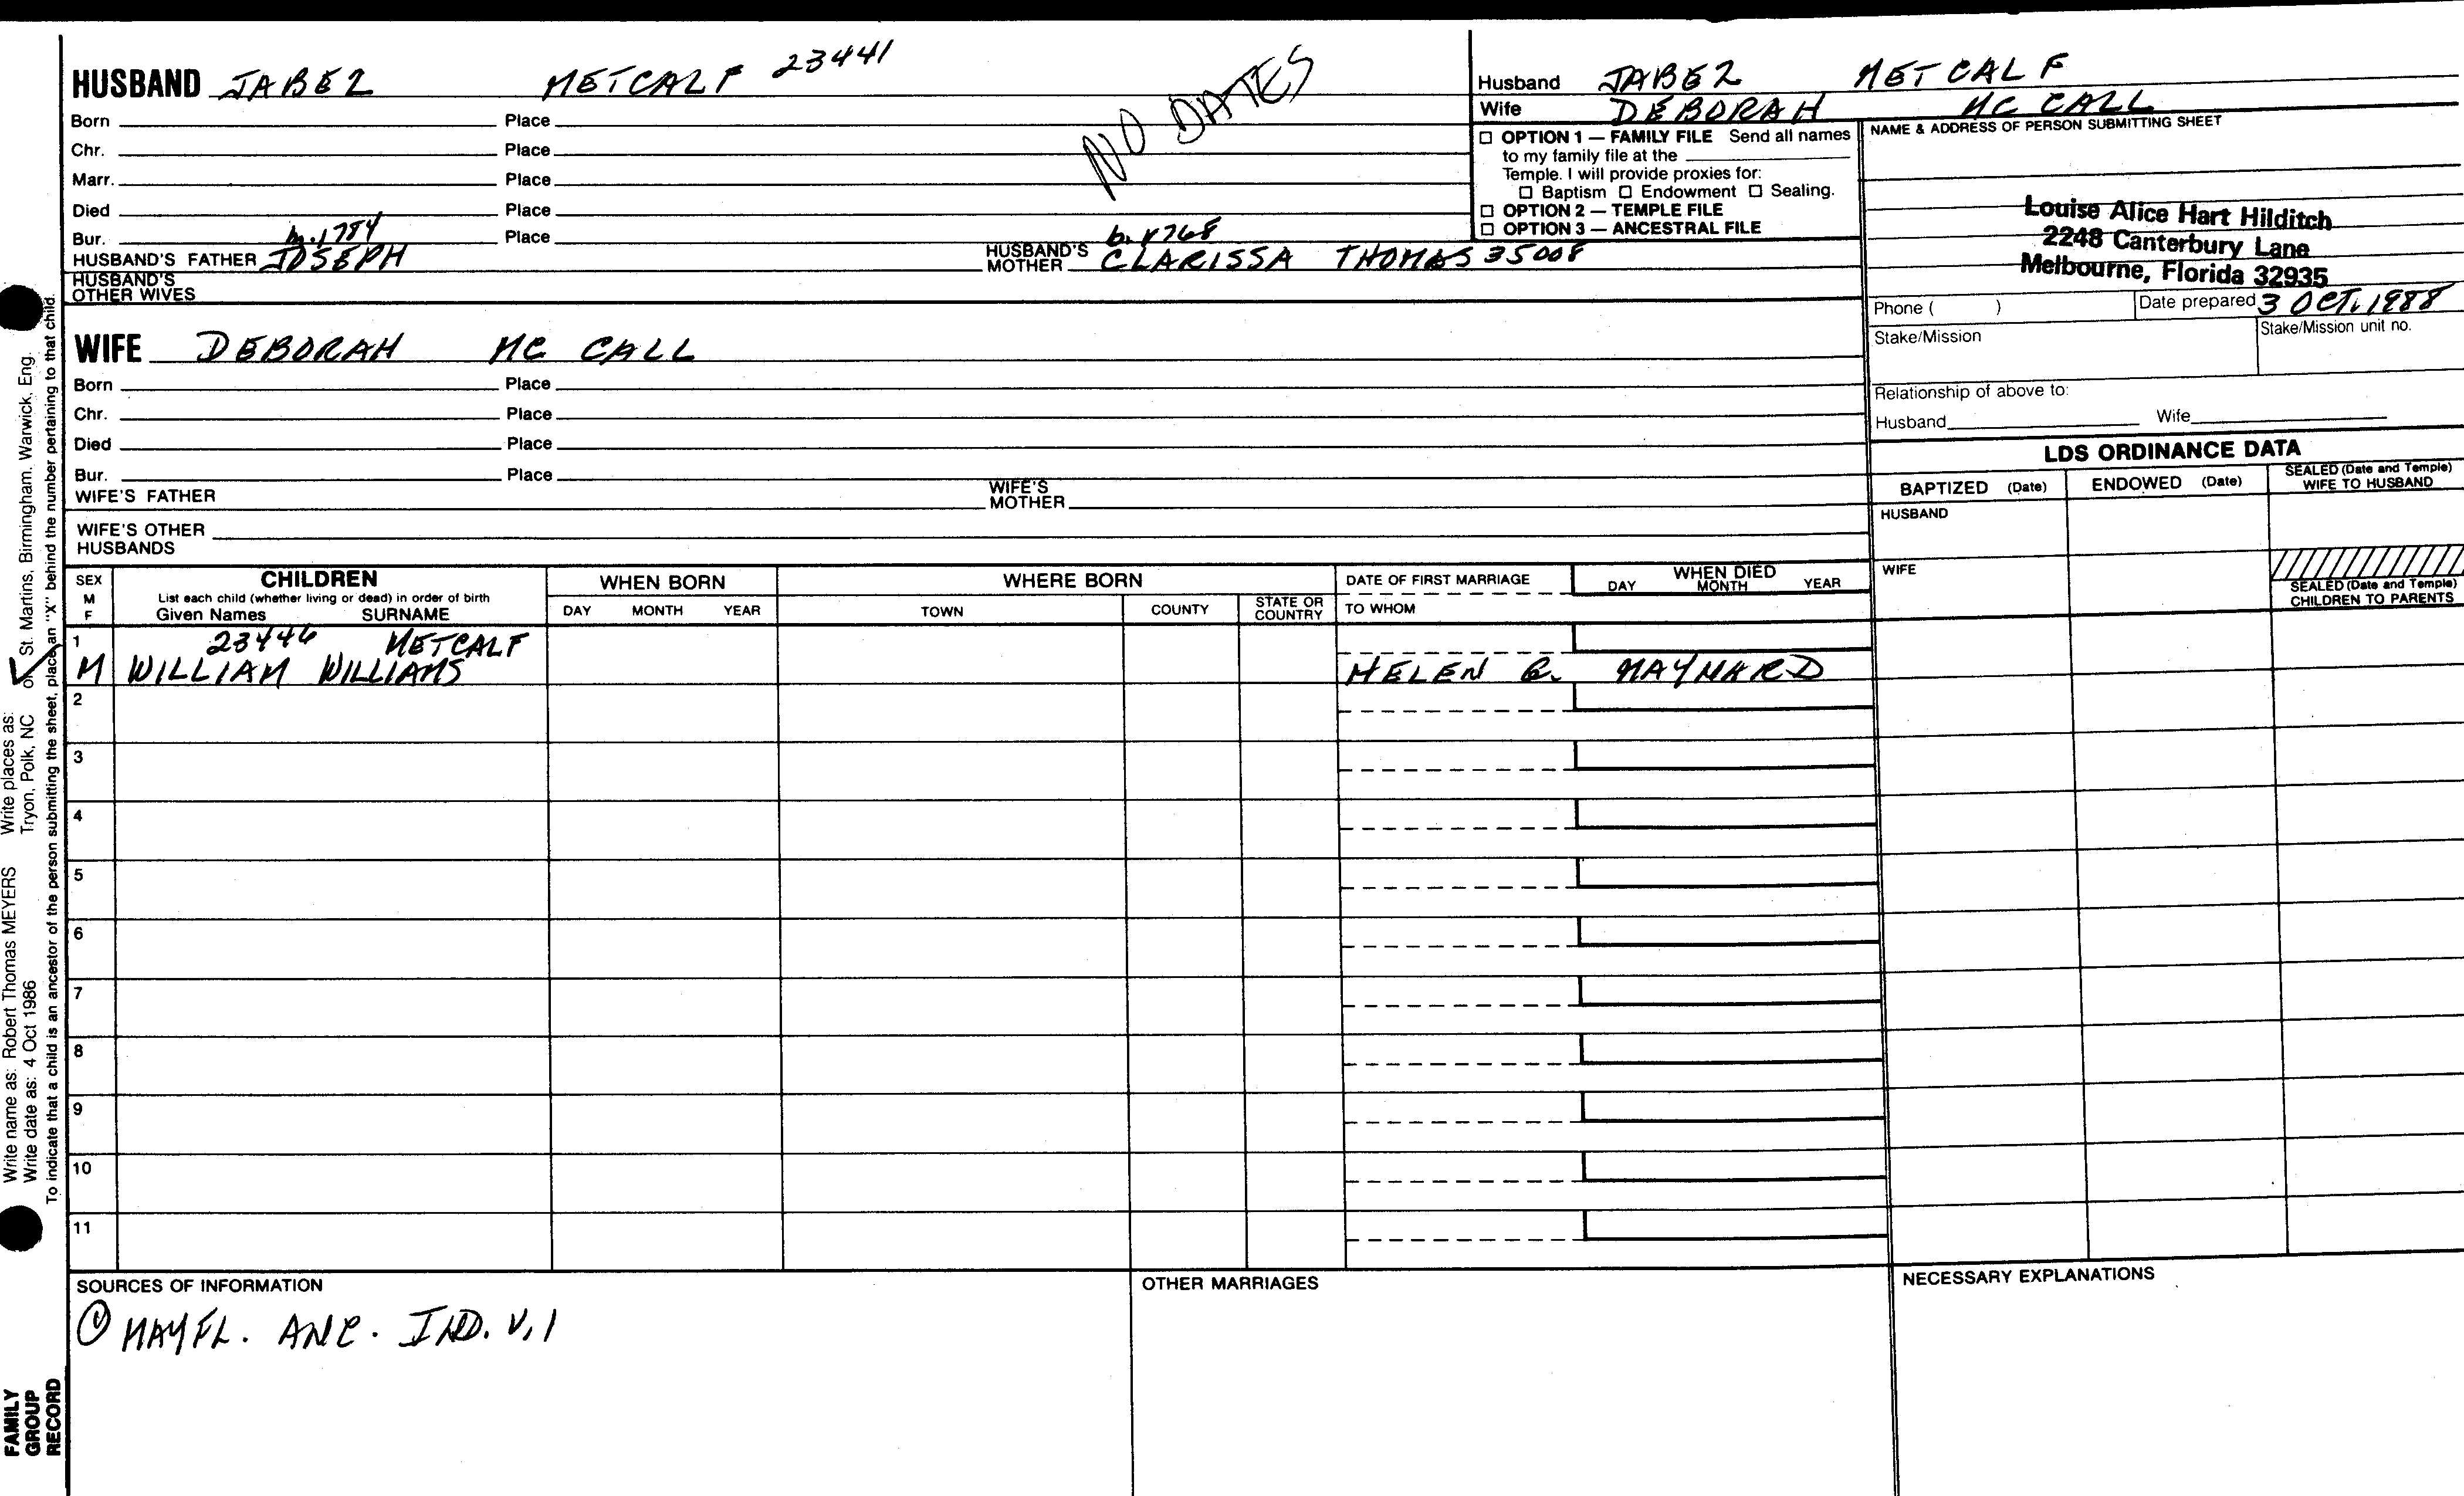 HUSBAND JABEZ METCALF 23441
Born Place
Chr. Place
Marr. Place
Died Place
Bur. Place
NO DATES
m. 1784
b. 1768
HUSBAND'S FATHER JOSEPH HUSBAND'S MOTHER CLARISSA THOMAS 35008
HUSBAND'S OTHER WIVES
WIFE DEBORAH MC CALL
Born Place
Chr. Place
Died Place
Bur. Place
WIFE'S FATHER WIFE'S MOTHER
WIFE'S OTHER HUSBANDS
Husband JABEZ METCALF
Wife DEBORAH MC CALL
☐ OPTION 1 — FAMILY FILE Send all names
to my family file at the
Temple. I will provide proxies for:
☐ Baptism ☐ Endowment ☐ Sealing.
☐ OPTION 2 — TEMPLE FILE
☐ OPTION 3 — ANCESTRAL FILE
NAME & ADDRESS OF PERSON SUBMITTING SHEET
Louise Alice Hart Hilditch
2248 Canterbury Lane
Melbourne, Florida 32935
Phone ( ) Date prepared 3 OCT. 1988
Stake/Mission Stake/Mission unit no.
Relationship of above to:
Husband Wife
LDS ORDINANCE DATA
BAPTIZED (Date) ENDOWED (Date) SEALED (Date and Temple) WIFE TO HUSBAND
HUSBAND
WIFE
SEALED (Date and Temple) CHILDREN TO PARENTS
SEX M F
CHILDREN
List each child (whether living or dead) in order of birth
Given Names SURNAME
WHEN BORN
DAY MONTH YEAR
WHERE BORN
TOWN COUNTY STATE OR COUNTRY
DATE OF FIRST MARRIAGE
TO WHOM
WHEN DIED
DAY MONTH YEAR
1 23446 METCALF
M WILLIAM WILLIAMS HELEN MAYNARD
2
3
4
5
6
7
8
9
10
11
SOURCES OF INFORMATION
① MAYFL. ANC. IND. V. 1
OTHER MARRIAGES
NECESSARY EXPLANATIONS
Write name as: Robert Thomas MEYERS Write places as: St. Martins, Birmingham. Warwick, Eng.
Write date as: 4 Oct 1986 Tryon, Polk, NC or
To indicate that a child is an ancestor of the person submitting the sheet, place an "X" behind the number pertaining to that child.
FAMILY
GROUP
RECORD